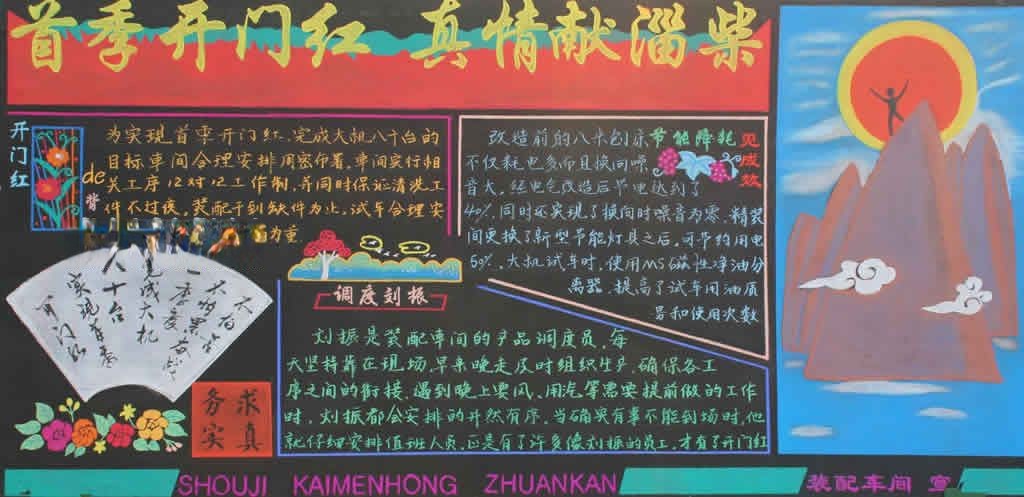 首季开门红 真情献淄柴
开门红
de
背
为实现首季开门红,完成大机八千台的
目标车间合理安排周密部署,车间实行相
关工序12对12工作制,并同时保证清洗工
件不过夜,装配干到缺件为止,试车合理安
为重
节能降耗
见成效
改造前的八米刨床
不仅耗电多而且换向噪
音大,经电气改造后节电达到了
40%,同时还实现了换向时噪音为零,精装
间更换了新型节能灯具之后,可节约用电
60%,大机试车时,使用MS磁性净油分
离器,提高了试车用油质
量和使用次数
调度刘振
刘振是装配车间的产品调度员,每
天坚持靠在现场,早来晚走及时组织生产,确保各工
序之间的衔接,遇到晚上要风、用汽等需要提前做的工作
时,刘振都会安排的井然有序,当确实有事不能到场时,他
就仔细安排值班人员,正是有了许多像刘振的员工,才有了开门红
不怕苦
不怕累
一季度
完成大机
八千台
实现首季
开门红
求真
务实
SHOUJI KAIMENHONG ZHUANKAN
装配车间 宣